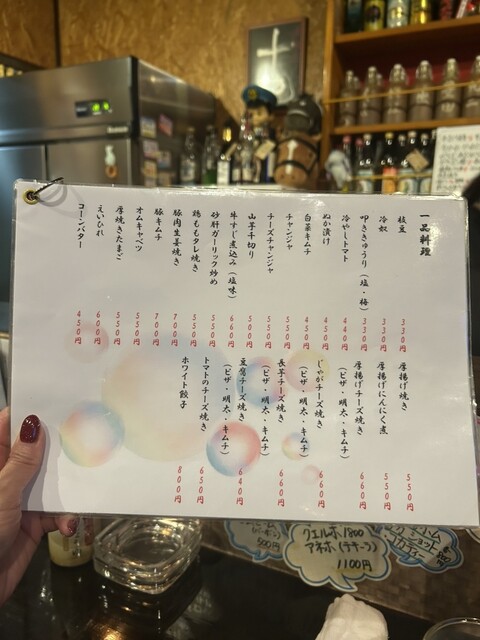 一品料理
枝豆 330円
冷奴 330円
叩ききゅうり（塩・梅） 330円
冷やしトマト 440円
ぬか漬け 450円
白菜キムチ 450円
チャンジャ 550円
チーズチャンジャ 550円
山芋千切り 500円
牛すじ煮込み（塩味） 660円
砂肝ガーリック炒め 550円
鶏ももタレ焼き 550円
豚肉生姜焼き 700円
豚キムチ 700円
オムキャベツ 550円
厚焼きたまご 550円
えいひれ 600円
コーンバター 450円
厚揚げ焼き 550円
厚揚げにんにく煮 550円
厚揚げチーズ焼き 660円
（ピザ・明太・キムチ）
じゃがチーズ焼き 660円
（ピザ・明太・キムチ）
長芋チーズ焼き 660円
（ピザ・明太・キムチ）
豆腐チーズ焼き 640円
（ピザ・明太・キムチ）
トマトのチーズ焼き 650円
ホワイト餃子 800円
500円
クエルボ1800
アネホ(テキーラ)
1100円